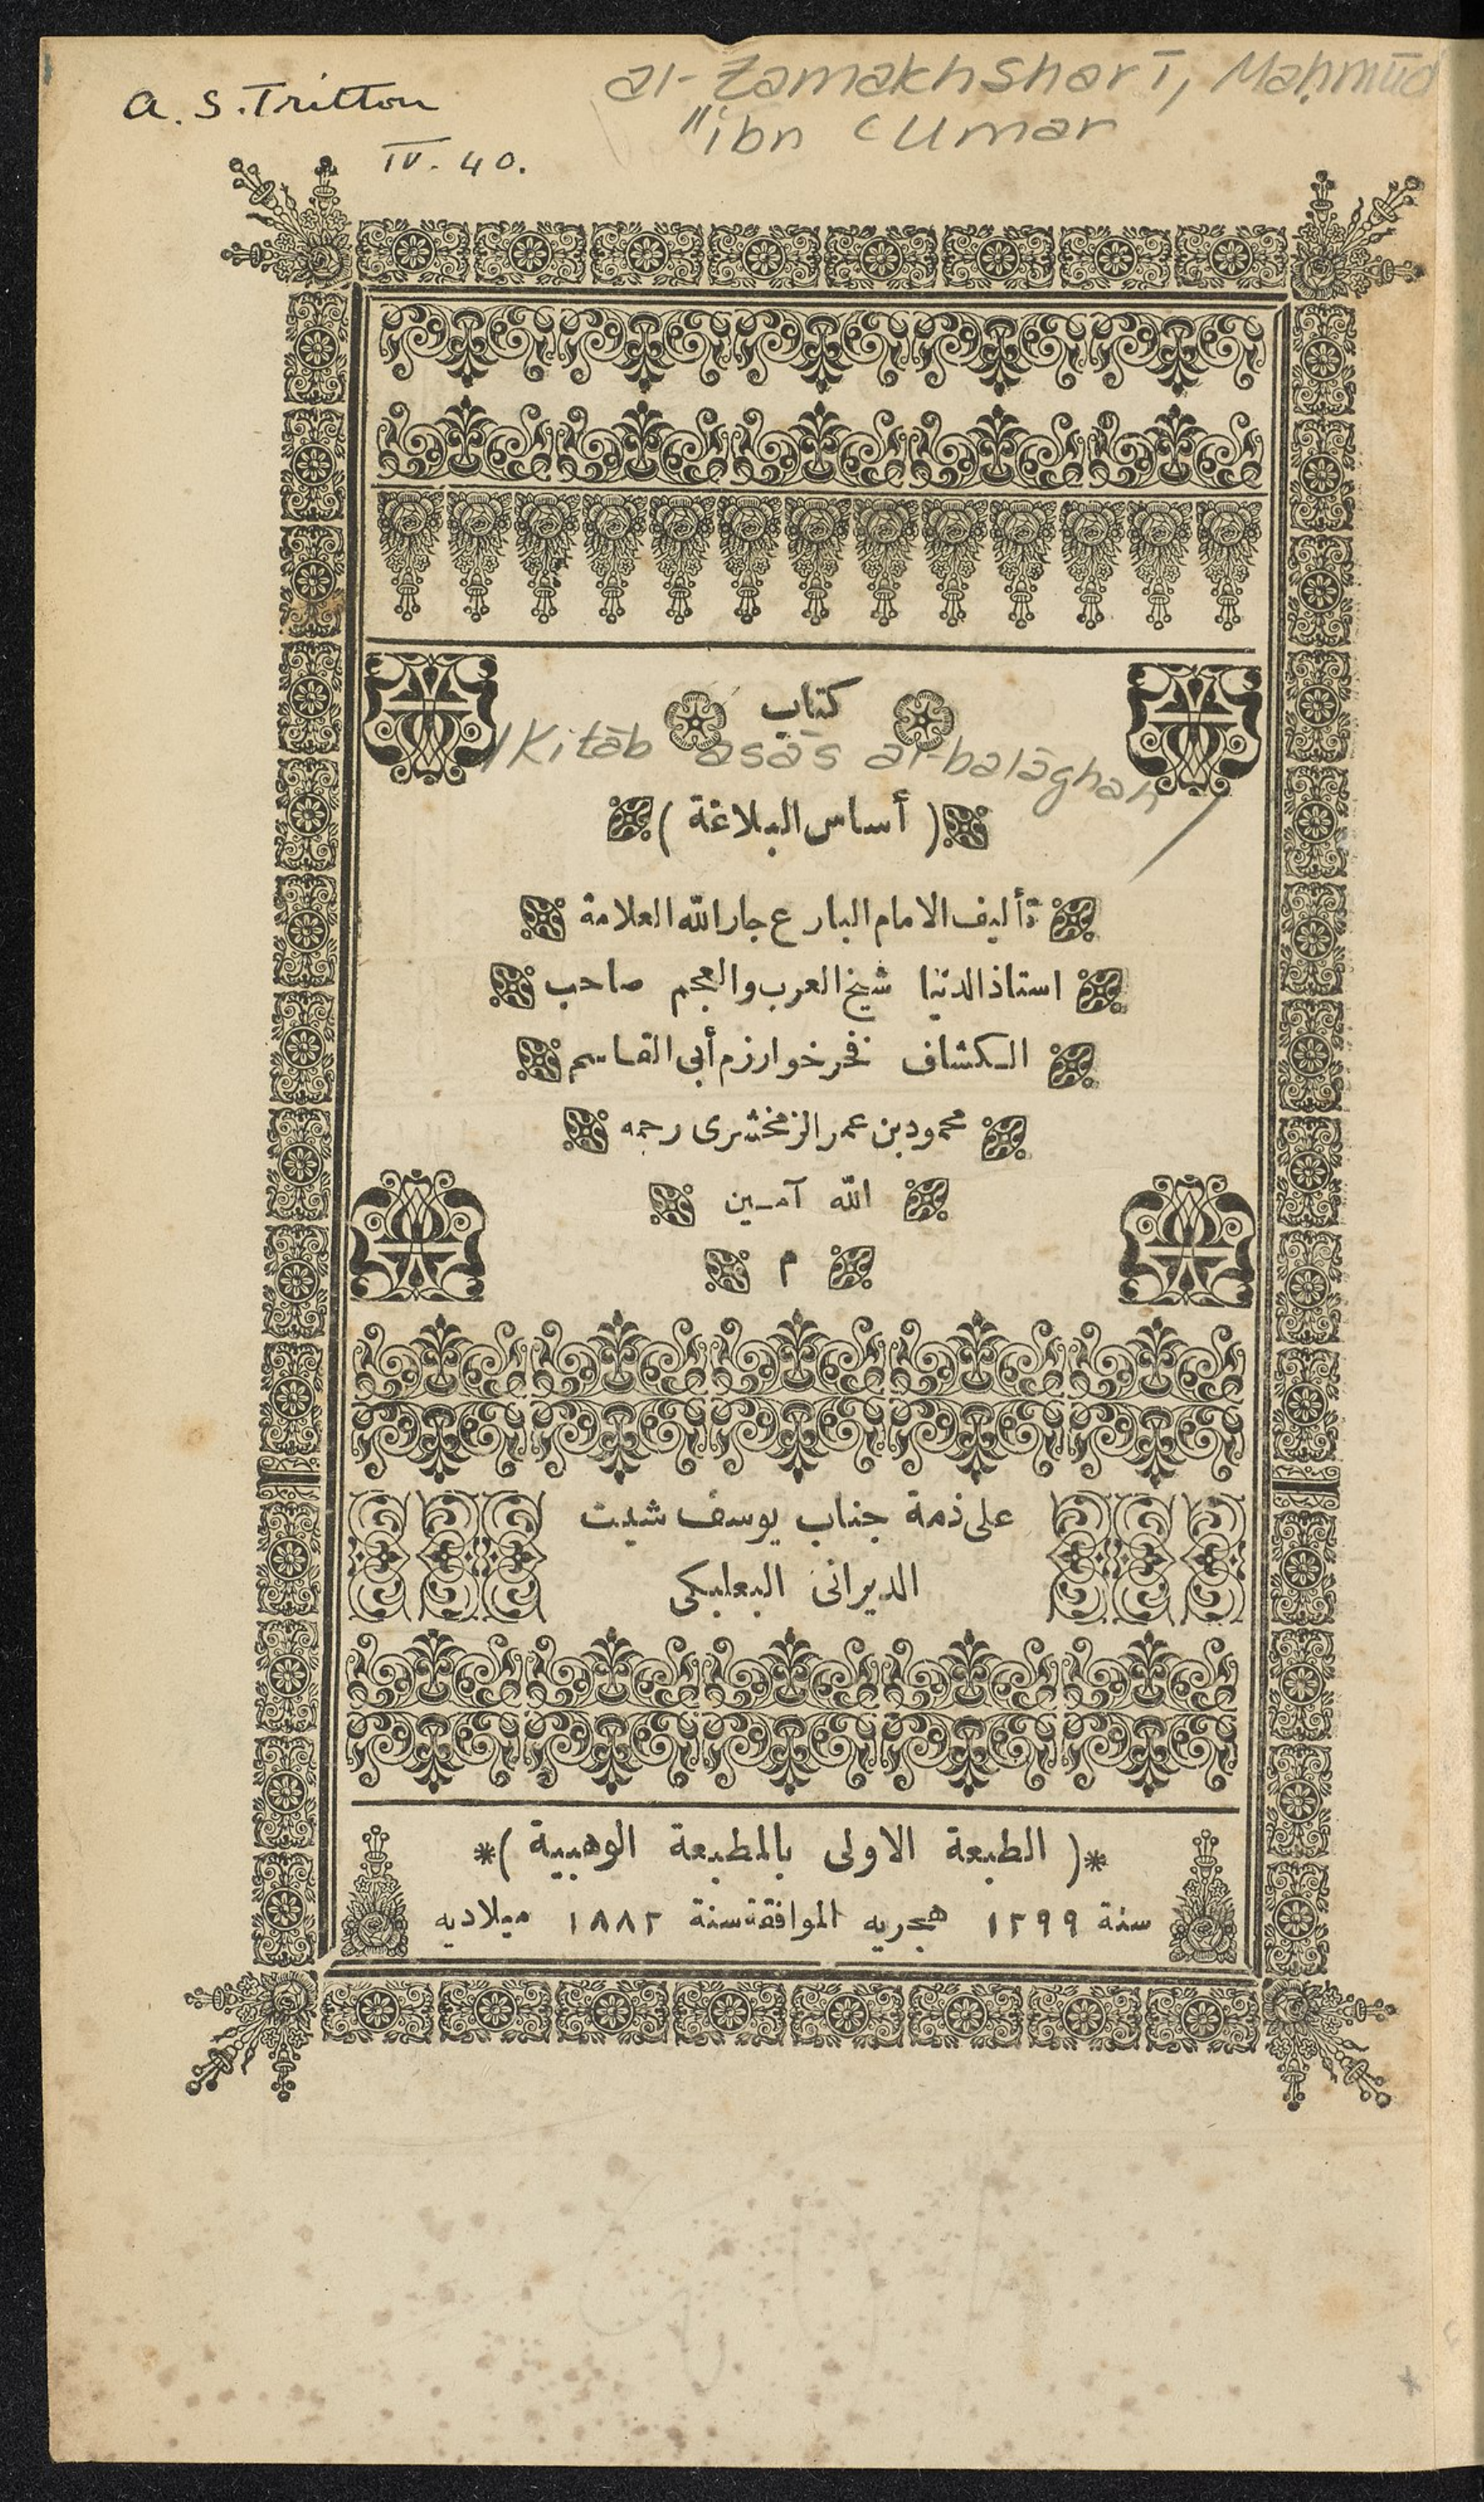 a. S. Tritton
IV. 40.
al-Zamakhsharī, Maḥmūd
ibn ʿUmar
كتاب
Kitāb asās al-balāghah
( أساس البلاغة )
تأليف الامام البارع جار الله العلامة
استاذ الدنيا شيخ العرب والعجم صاحب
الكشاف فخر خوارزم أبى القاسم
محمود بن عمر الزمخشرى رحمه
الله آمين
م
على ذمة جناب يوسف شيت
الديرانى البعلبكى
*( الطبعة الاولى بالمطبعة الوهبية )*
سنة ١٢٩٩ هجريه الموافقة سنة ١٨٨٢ ميلاديه